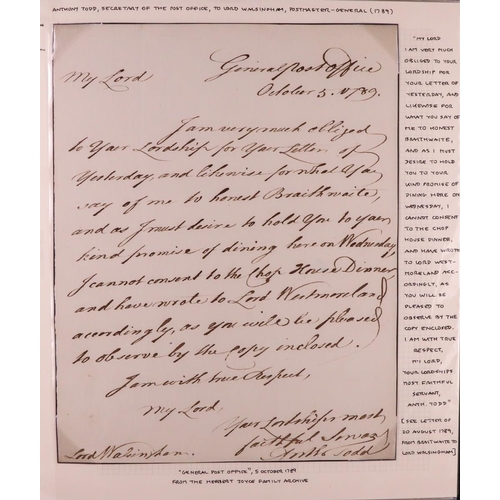 ANTHONY TODD, SECRETARY OF THE POST OFFICE, TO LORD WALSINGHAM, POSTMASTER-GENERAL (1789)
General Post Office
My Lord
October 5. 1789.
I am very much obliged
to Your Lordship for Your Letter of
Yesterday, and likewise for what You
say of me to honest Braithwaite,
and as I must desire to hold You to your
kind promise of dining here on Wednesday
I cannot consent to the Chop House Dinner
and have wrote to Lord Westmoreland
accordingly, as you will be pleased
to observe by the copy inclosed.
I am with true Respect,
My Lord
Your Lordships most
faithful Servant
Anth Todd
Lord Walsingham.
"MY LORD
I AM VERY MUCH
OBLIGED TO YOUR
LORDSHIP FOR
YOUR LETTER OF
YESTERDAY, AND
LIKEWISE FOR
WHAT YOU SAY OF
ME TO HONEST
BRAITHWAITE,
AND AS I MUST
DESIRE TO HOLD
YOU TO YOUR
KIND PROMISE OF
DINING HERE ON
WEDNESDAY, I
CANNOT CONSENT
TO THE CHOP
HOUSE DINNER,
AND HAVE WROTE
TO LORD WEST-
MORELAND ACC-
ORDINGLY, AS
YOU WILL BE
PLEASED TO
OBSERVE BY THE
COPY ENCLOSED.
I AM WITH TRUE
RESPECT,
M'LORD,
YOUR LORDSHIPS
MOST FAITHFUL
SERVANT,
ANTH. TODD"
[SEE LETTER OF
20 AUGUST 1789,
FROM BRAITHWAITE TO
LORD WALSINGHAM]
"GENERAL POST OFFICE", 5 OCTOBER 1789
FROM THE HERBERT JOYCE FAMILY ARCHIVE